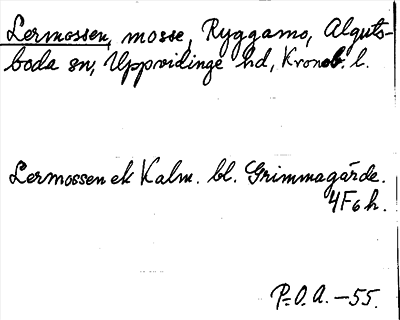 Lermossen, mosse, Ryggamo, Älguts-
boda sn, Uppvidinge hd, Kronob. l.
Lermossen ek Kalm. bl. Grimmagärde.
4F6h.
P.O.A. -55.